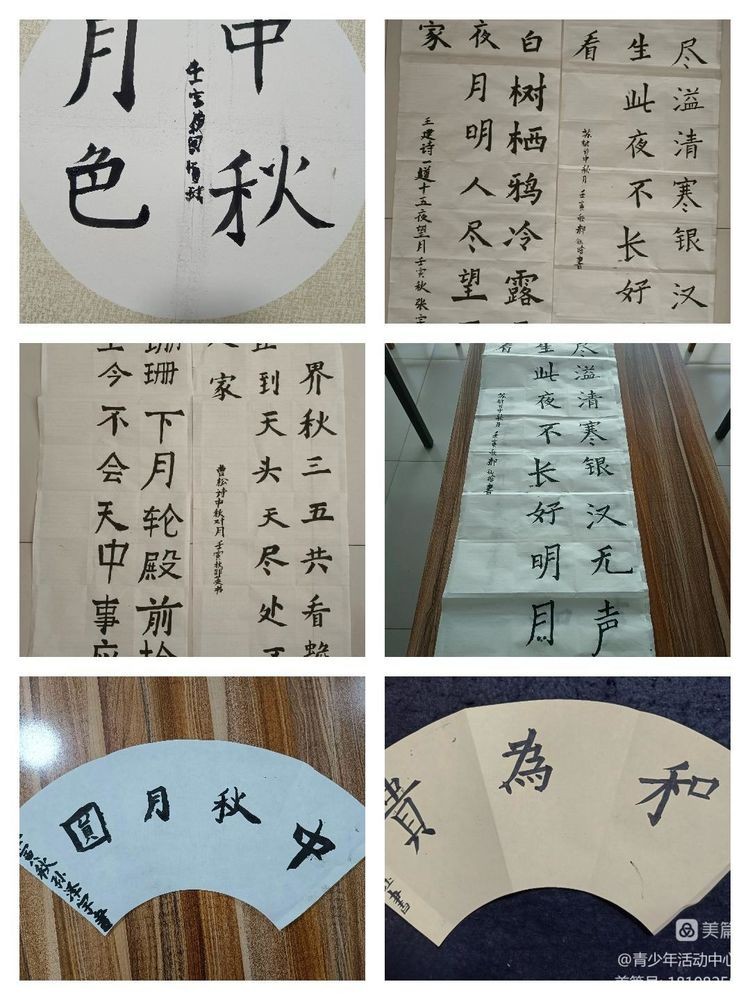 中秋
月色
壬寅
尽溢清寒银汉
生此夜不长好
看
苏轼诗中秋月 壬寅秋郝
白树栖鸦冷露
夜月明人尽望
家
王建诗一道十五夜望月壬寅秋张
界秋三五共看蟾
到天头天尽处
家
曹松诗中秋对月 壬寅秋
珊下月轮殿前拾
今不会天中事应
尽溢清寒银汉无声
生此夜不长好明月
看
苏轼诗中秋月 壬寅秋郝
中秋月圓
寅秋孙
和為貴
美篇
@青少年活动中心